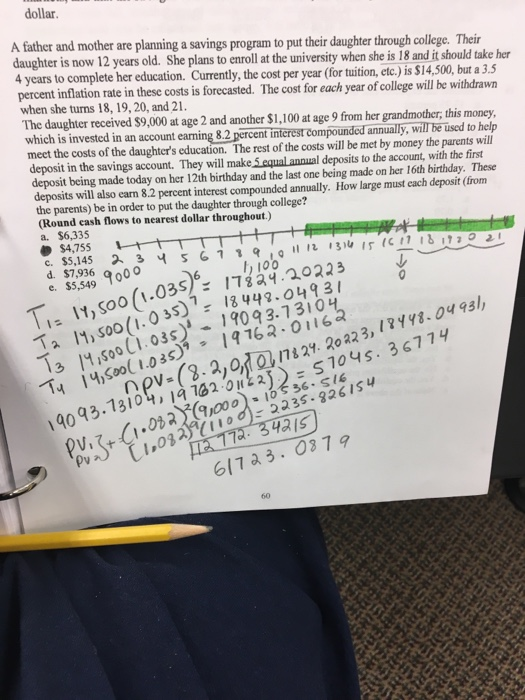 dollar.
A father and mother are planning a savings program to put their daughter through college. Their
daughter is now 12 years old. She plans to enroll at the university when she is 18 and it should take her
4 years to complete her education. Currently, the cost per year (for tuition, etc.) is $14,500, but a 3.5
percent inflation rate in these costs is forecasted. The cost for each year of college will be withdrawn
when she turns 18, 19, 20, and 21.
The daughter received $9,000 at age 2 and another $1,100 at age 9 from her grandmother; this money,
which is invested in an account earning 8.2 percent interest compounded annually, will be used to help
meet the costs of the daughter's education. The rest of the costs will be met by money the parents will
deposit in the savings account. They will make 5 equal annual deposits to the account, with the first
deposit being made today on her 12th birthday and the last one being made on her 16th birthday. These
deposits will also earn 8.2 percent interest compounded annually. How large must each deposit (from
the parents) be in order to put the daughter through college?
(Round cash flows to nearest dollar throughout.)
a. $6,335
$4,755
c. $5,145
d. $7,936
e. $5,549
2 3 4 5 6 7 8 9 10 11 12 13 14 15 16 17 18 19 20 21
9000 1,100 0
T1= 14,500(1.035)^6 = 17824.20223
T2 14,500(1.035)^7 = 18448.04931
T3 14,500(1.035)^8 = 19093.73104
T4 14,500(1.035)^9 = 19762.01162
npv=(8.2,0,{0,17824.20223,18448.04931,
19093.73104,19762.01162}) = 57045.36774
PV.3+(1.082)^2(9,000) = 10536.516
PV2 (1.082)^9(1100) = 2235.826154
12772.34215
61723.0879
60